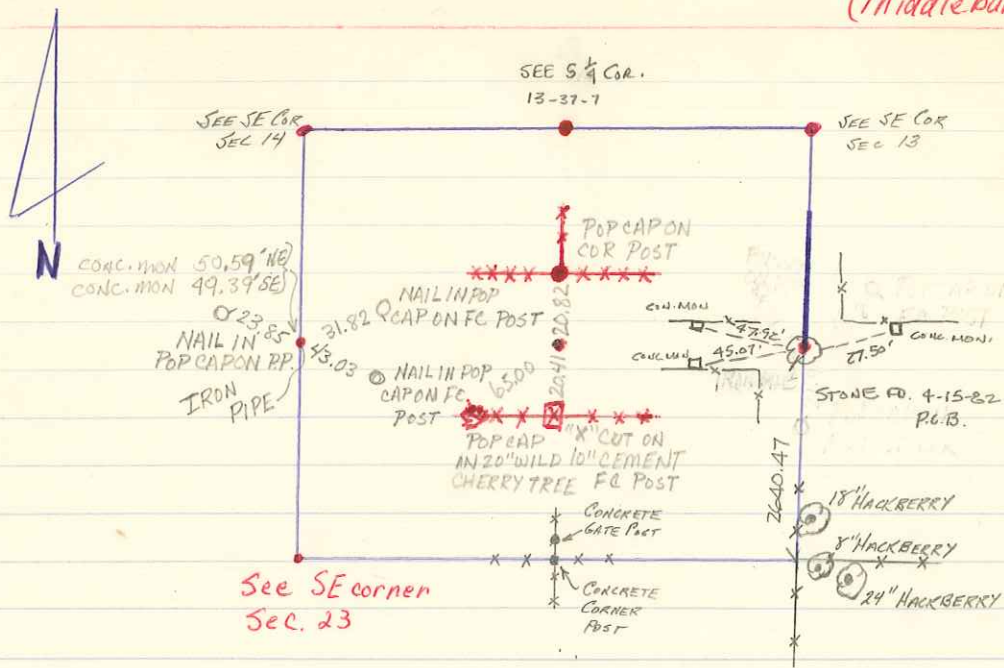 (Middlebu
SEE S 1/4 COR.
13-37-7
SEE SE COR
SEC 14
SEE SE COR
SEC 13
N
POP CAP ON
COR POST
CONC. MON 50.59' NE)
CONC. MON 49.39' SE)
23.85
NAIL IN
POP CAP ON P.P.
IRON
PIPE
31.82
NAIL IN POP
CAP ON FC POST
43.03
NAIL IN POP
CAP ON FC
POST
20.82
20.41
65.00
POP CAP
IN 20" WILD
CHERRY TREE
"X" CUT ON
10" CEMENT
FC POST
CON. MON
47.92'
CONC MON
45.07'
CONC. MON.
27.50'
STONE FD. 4-15-82
P.G.B.
2640.47
18" HACKBERRY
8" HACKBERRY
24" HACKBERRY
CONCRETE
GATE POST
CONCRETE
CORNER
POST
See SE corner
Sec. 23